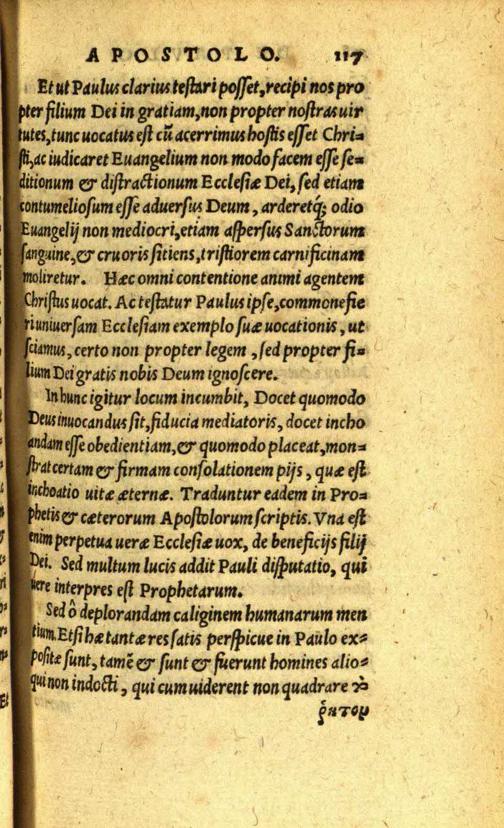 APOSTOLO. 117
Et ut Paulus clarius testari posset, recipi nos pro
pter filium Dei in gratiam, non propter nostras uir
tutes, tunc uocatus est cũ acerrimus hostis esset Chri=
sti, ac iudicaret Euangelium non modo facem esse se=
ditionum & distractionum Ecclesiæ Dei, sed etiam
contumeliosum esse aduersus Deum, arderetq́; odio
Euangelij non mediocri, etiam aspersus Sanctorum
sanguine, & cruoris sitiens, tristiorem carnificinam
moliretur. Hæc omni contentione animi agentem
Christus uocat. Ac testatur Paulus ipse, commonefie
ri uniuersam Ecclesiam exemplo suæ uocationis, ut
sciamus, certo non propter legem, sed propter fi=
lium Dei gratis nobis Deum ignoscere.
In hunc igitur locum incumbit, Docet quomodo
Deus inuocandus sit, fiducia mediatoris, docet incho
andam esse obedientiam, & quomodo placeat, mon=
strat certam & firmam consolationem pijs, quæ est
inchoatio uitæ æternæ. Traduntur eadem in Pro=
phetis & cæterorum Apostolorum scriptis. Vna est
enim perpetua ueræ Ecclesiæ uox, de beneficijs filij
Dei. Sed multum lucis addit Pauli disputatio, qui
uere interpres est Prophetarum.
Sed ô deplorandam caliginem humanarum men
tium. Etsi hæ tantæ res satis perspicue in Paulo ex=
positæ sunt, tamẽ & sunt & fuerunt homines alio=
qui non indocti, qui cum uiderent non quadrare